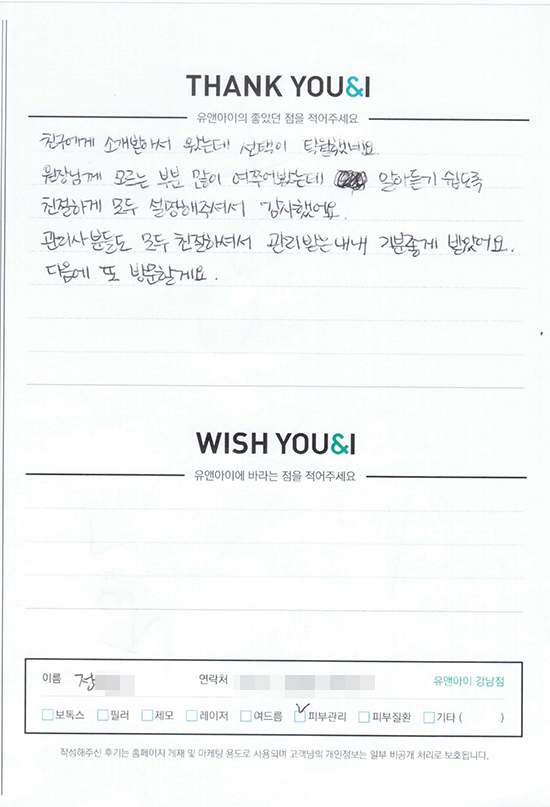 THANK YOU&I
유앤아이의 좋았던 점을 적어주세요
친구에게 소개받아서 왔는데 선택이 탁월했네요.
원장님께 모르는 부분 많이 여쭈어봤는데 알아듣기 쉽도록
친절하게 모두 설명해주셔서 감사했어요.
관리사분들도 모두 친절하셔서 관리받는내내 기분좋게 받았어요.
다음에 또 방문할게요.
WISH YOU&I
유앤아이에 바라는 점을 적어주세요
이름 정 연락처 유앤아이 강남점
보톡스 필러 제모 레이저 여드름 피부관리 피부질환 기타 ( )
작성해주신 후기는 홈페이지 게재 및 마케팅 용도로 사용되며 고객님의 개인정보는 일부 비공개 처리로 보호됩니다.